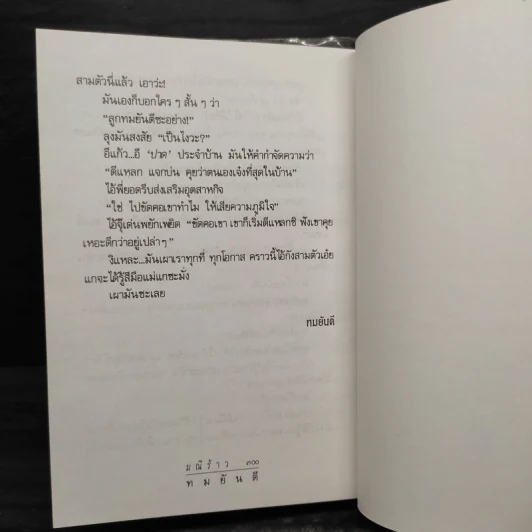 สามตัวนี่แล้ว เอาว่ะ!
มันเองก็บอกใคร ๆ สั้น ๆ ว่า
“ลูกทมยันตีซะอย่าง!”
ลุงมันสงสัย “เป็นไงวะ?”
อีแก้ว...อี ‘ปาด’ ประจำบ้าน มันให้คำกำจัดความว่า
“ดีแหลก แจกบ่น คุยว่าตนเองเจ๋งที่สุดในบ้าน”
ไอ้พี่ยอดรีบส่งเสริมอุตสาหกิจ
“ใช่ ไปขัดคอเขาทำไม ให้เสียความภูมิใจ”
ไอ้จุ๊เด่นพยักเพยิด “ขัดคอเขา เขาก็เริ่มดีแหลกซิ ฟังเขาคุย
เหอะดีกว่าอยู่เปล่าๆ”
งี้แหละ...มันเผาเราทุกที่ ทุกโอกาส คราวนี้ไอ้กังสามตัวเอ๋ย
แกจะได้รู้สีมือแม่แกซะมั่ง
เผามันซะเลย
ทมยันตี
มณีร้าว ๓๐๐
ทมยันตี